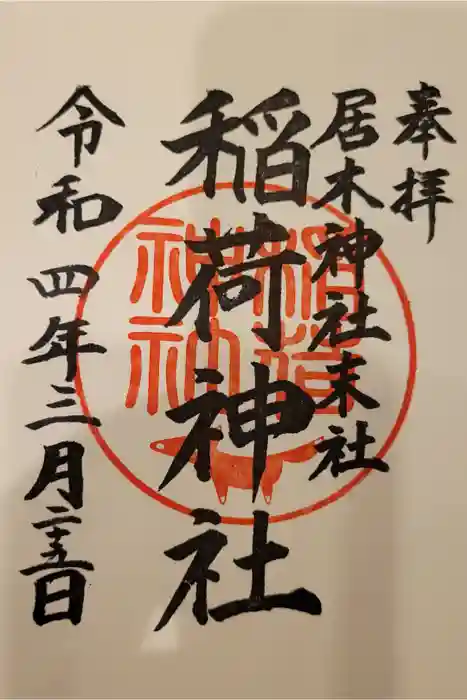 奉拝
居木神社末社
稲荷神社
稲荷
神社
令和四年三月二十五日